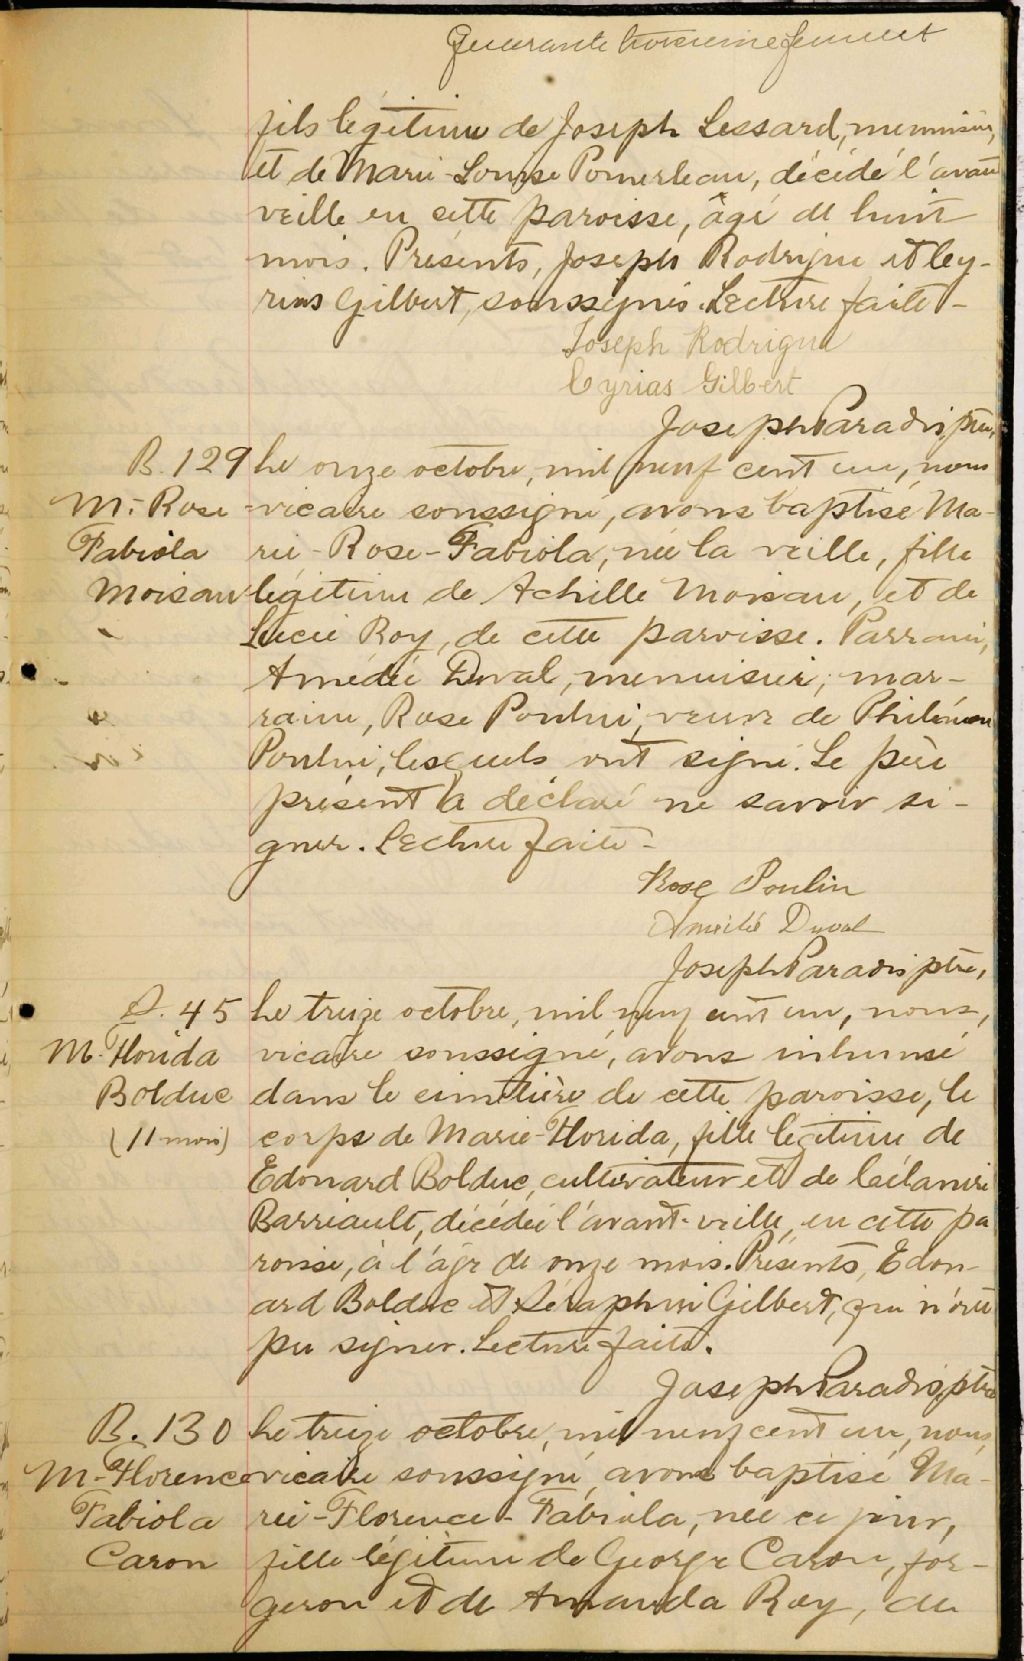 Quarante troisième feuillet
fils légitime de Joseph Lessard, menuisier,
et de Marie-Louise Pomerleau, décédé l'avant
veille en cette paroisse, âgé de huit
mois. Présents, Joseph Rodrigue et Cy-
rias Gilbert, soussignés. Lecture faite -
Joseph Rodrigue
Cyrias Gilbert
Joseph Paradis, ptre,
B. 129 Le onze octobre, mil neuf cent un, nous
M.-Rose vicaire soussigné, avons baptisé Ma-
Fabiola rie-Rose-Fabiola, née la veille, fille
Moisan légitime de Achille Moisan, et de
Lucie Roy, de cette paroisse. Parrain,
Amédée Duval, menuisier; mar-
raine, Rose Poulin, veuve de Philémon
Poulin, lesquels ont signé. Le père
présent a déclaré ne savoir si-
gner. Lecture faite -
Rose Poulin
Amédé Duval
Joseph Paradis ptre,
S. 45 Le treize octobre, mil neuf cent un, nous,
M. Florida vicaire soussigné, avons inhumé
Bolduc dans le cimetière de cette paroisse, le
(11 mois) corps de Marie-Florida, fille légitime de
Edouard Bolduc, cultivateur et de Célanire
Barriault, décédée l'avant-veille, en cette pa
roisse, à l'âge de onze mois. Présents, Edou-
ard Bolduc et Séraphin Gilbert, qui n'ont
pu signer. Lecture faite.
Joseph Paradis, ptre
B. 130 Le treize octobre, mil neuf cent un, nous,
M.-Florence vicaire soussigné, avons baptisé Ma-
Fabiola rie-Florence-Fabiola, née ce jour,
Caron fille légitime de George Caron, for-
geron et de Amanda Roy, de